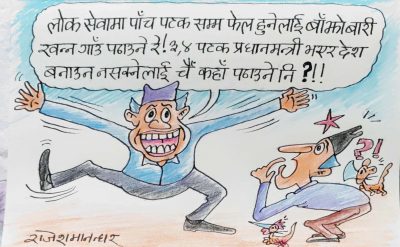 लोक सेवामा पाँच पटक सम्म फेल हुनेलाई बाँझो बारी
खन्न गाउँ पढाउने रे! ३,४ पटक प्रधानमन्त्री भएर देश
बनाउन नसक्नेलाई चैं कहाँ पढाउने नि ?!!
?!
राजेशमानन्धर